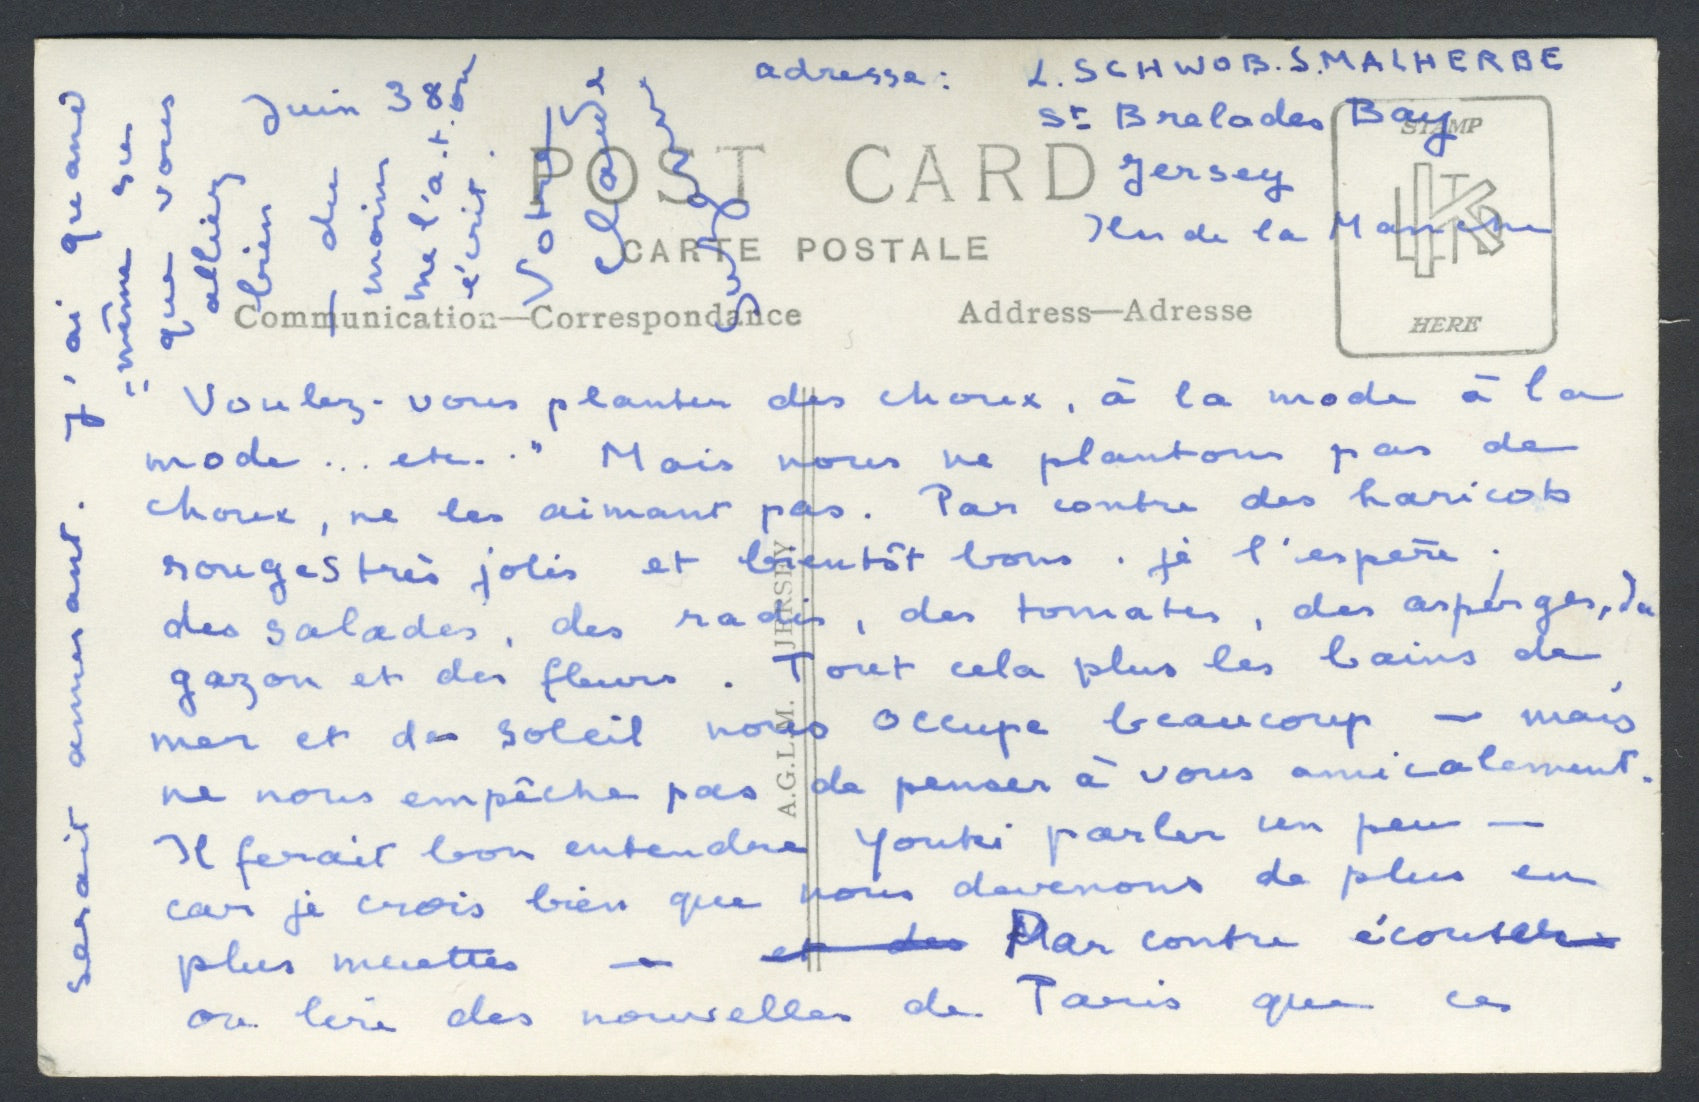 Juin 38
adresse : L. SCHWOB. S. MALHERBE
St Brelades Bay
Jersey
Iles de la Manche
POST CARD
CARTE POSTALE
Communication—Correspondance
Address—Adresse
STAMP
HERE
A.G.L.M. JERSEY
"Voulez-vous planter des choux, à la mode à la
mode ... etc.." Mais nous ne plantons pas de
choux, ne les aimant pas. Par contre des haricots
rouges très jolis et bientôt bons. je l'espère.
des salades, des radis, des tomates, des asperges, du
gazon et des fleurs. Tout cela plus les bains de
mer et de soleil nous occupe beaucoup — mais
ne nous empêche pas de penser à vous amicalement.
Il ferait bon entendre Youki parler un peu —
car je crois bien que nous devenons de plus en
plus muettes — et des Par contre écouter
ou lire des nouvelles de Paris que ce
serait amusant. J'ai quand
même su
que vous
alliez
bien
— du
moins
me l'a.t.on
écrit.
Votre
Claude
Suzanne